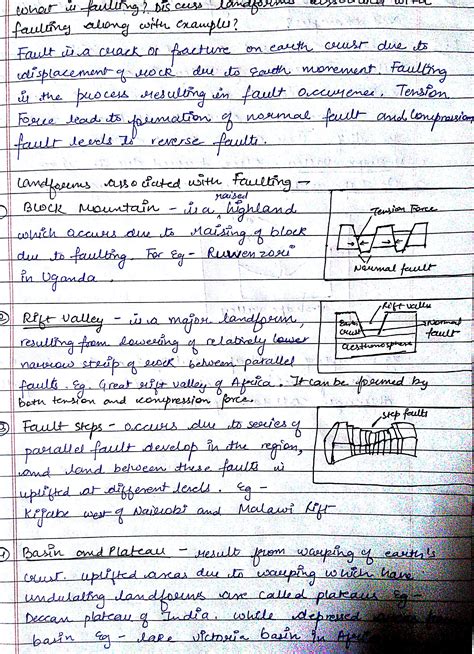 What is faulting? Discuss landforms associated with
faulting along with example?
Fault is a crack or fracture on earth crust due to
displacement of rock due to Earth movement. Faulting
is the process resulting in fault occurence. Tension
Force lead to formation of normal fault and compression
fault levels to reverse faults.
Landforms associated with Faulting -
Block Mountain - is a raised highland
which occurs due to raising of block
due to faulting. For Eg - Ruwenzori
in Uganda.
Tension Force
Normal fault
2 Rift Valley - is a major landform,
resulting from lowering of relatively lower
narrow strip of rock between parallel
faults. Eg. Great rift valley of Africa. It can be formed by
both tension and compression force.
Rift valley
Earth crust
Normal fault
Aesthmosphere
3 Fault steps - occurs due to series of
parallel fault develop in the region,
and land between these faults is
uplifted at different levels. Eg -
Kijabe west of Nairobi and Malawi Rift
step faults
Basin and Plateau - result from warping of earth's
crust. uplifted areas due to warping which have
undulating landforms are called plateaus Eg -
Deccan plateau of India. while depressed
basin Eg - lake victoria basin in